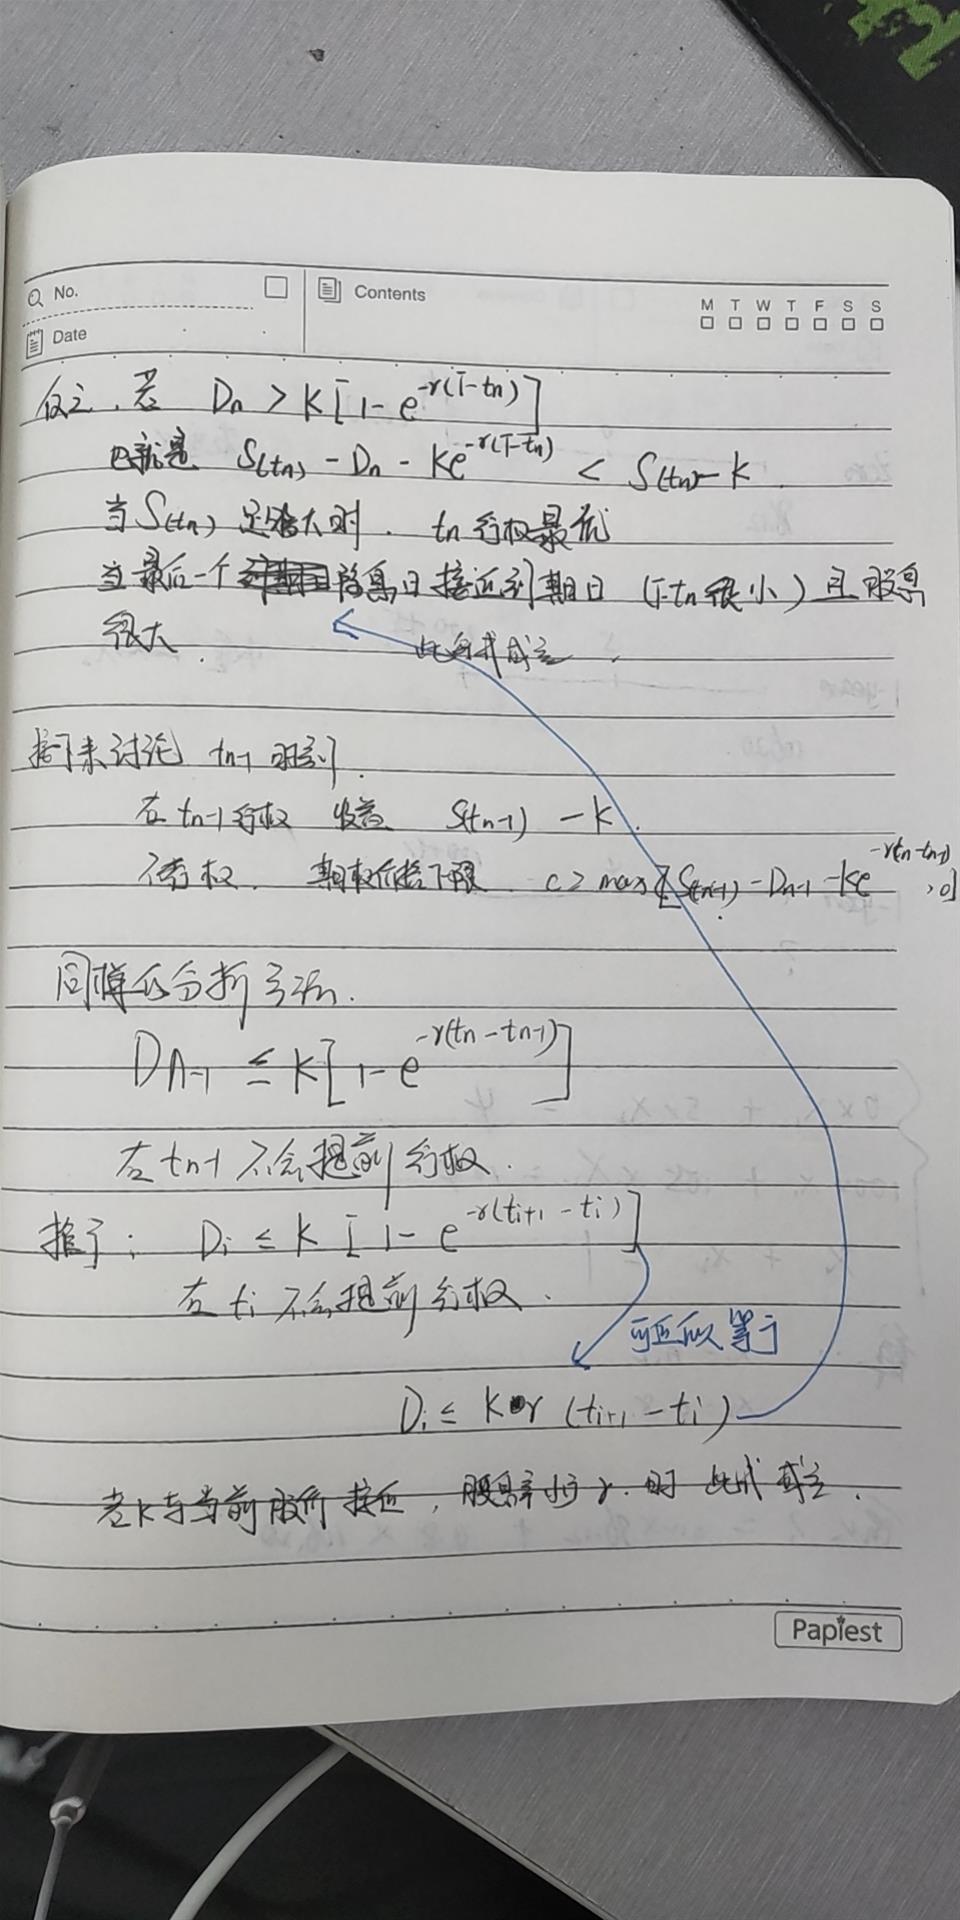 No.
Contents
M T W T F S S
Date
反之，若 Dn > K[1-e^{-r(T-tn)}]
也就是 S(tn) - Dn - Ke^{-r(T-tn)} < S(tn) - K .
当 S(tn) 足够大时 . tn 行权最优
当最后一个 除息日接近到期日 (T-tn 很小) 且股息
很大 . 此 成立 .
接下来讨论 tn-1 时刻 .
在 tn-1 行权 收益 S(tn-1) - K .
不行权 . 期权价格下限 . c ≥ max[S(tn-1) - Dn-1 - Ke^{-r(tn-tn-1)}, 0]
同样的分析方法 .
Dn-1 ≤ K[1-e^{-r(tn-tn-1)}]
在 tn-1 不会提前行权 .
推广 : Di ≤ K [1-e^{-r(ti+1-ti)}]
在 ti 不会提前行权 .
可近似等于
Di ≤ K r (ti+1 - ti)
若K与当前股价接近 , 股息率小于 r . 时 此式成立 .
Papiest